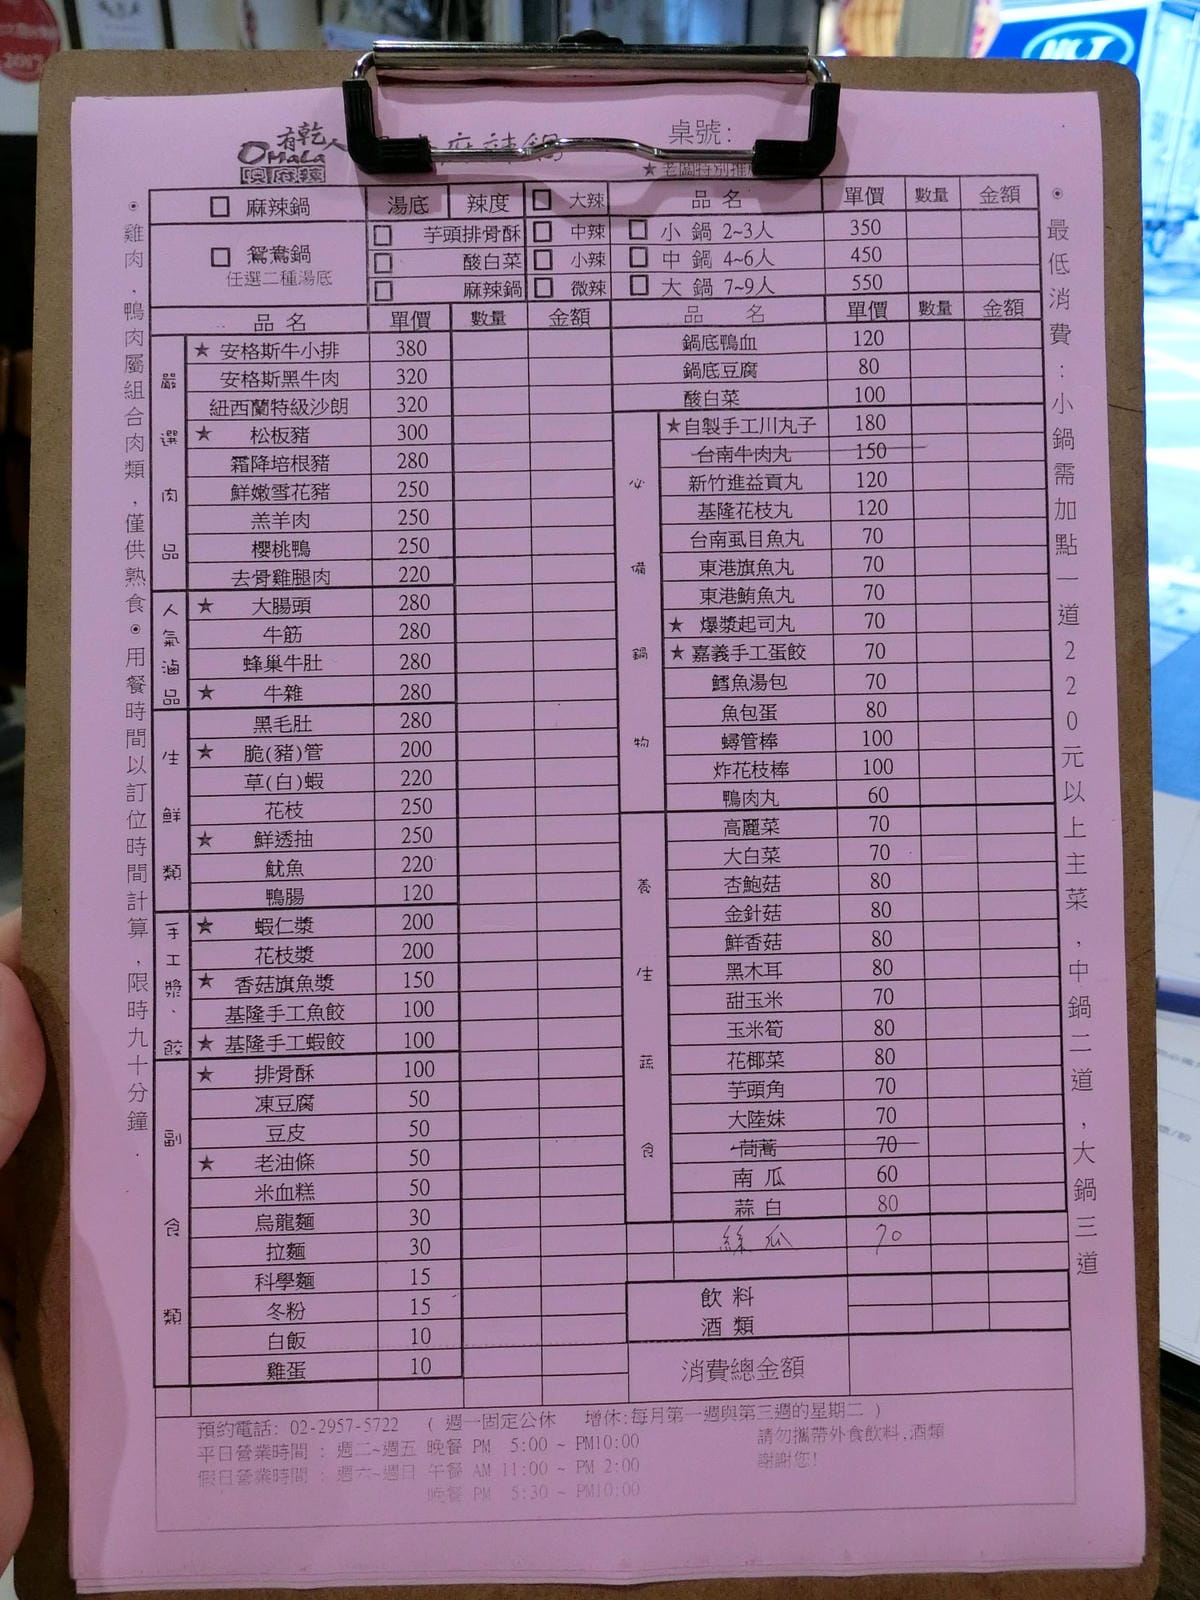 2017
HCT
有乾人
OMaLa
噢麻辣
麻辣鍋
桌號:
★老闆特別推
□ 麻辣鍋 湯底 辣度 □ 大辣 品名 單價 數量 金額
□ 鴛鴦鍋 □ 芋頭排骨酥 □ 中辣 □ 小鍋 2~3人 350
任選二種湯底 □ 酸白菜 □ 小辣 □ 中鍋 4~6人 450
□ 麻辣鍋 □ 微辣 □ 大鍋 7~9人 550
品名 單價 數量 金額
嚴選肉品
★ 安格斯牛小排 380
安格斯黑牛肉 320
紐西蘭特級沙朗 320
★ 松板豬 300
霜降培根豬 280
鮮嫩雪花豬 250
羔羊肉 250
櫻桃鴨 250
去骨雞腿肉 220
人氣滷品
★ 大腸頭 280
牛筋 280
蜂巢牛肚 280
★ 牛雜 280
生鮮類
黑毛肚 280
★ 脆(豬)管 200
草(白)蝦 220
花枝 250
★ 鮮透抽 250
魷魚 220
鴨腸 120
手工漿、餃
★ 蝦仁漿 200
花枝漿 200
★ 香菇旗魚漿 150
基隆手工魚餃 100
★ 基隆手工蝦餃 100
副食類
★ 排骨酥 100
凍豆腐 50
豆皮 50
★ 老油條 50
米血糕 50
烏龍麵 30
拉麵 30
科學麵 15
冬粉 15
白飯 10
雞蛋 10
品名 單價 數量 金額
鍋底鴨血 120
鍋底豆腐 80
酸白菜 100
必備鍋物
★自製手工川丸子 180
台南牛肉丸 150
新竹進益貢丸 120
基隆花枝丸 120
台南虱目魚丸 70
東港旗魚丸 70
東港鮪魚丸 70
★ 爆漿起司丸 70
★ 嘉義手工蛋餃 70
鱈魚湯包 70
魚包蛋 80
蟳管棒 100
炸花枝棒 100
鴨肉丸 60
養生蔬食
高麗菜 70
大白菜 70
杏鮑菇 80
金針菇 80
鮮香菇 80
黑木耳 80
甜玉米 70
玉米筍 80
花椰菜 80
芋頭角 70
大陸妹 70
茼蒿 70
南瓜 60
蒜白 80
絲瓜 70
飲料
酒類
消費總金額
◉雞肉、鴨肉屬組合肉類，僅供熟食◉用餐時間以訂位時間計算，限時九十分鐘．
◉最低消費：小鍋需加點一道220元以上主菜，中鍋二道，大鍋三道
預約電話: 02-2957-5722 ( 週一固定公休 增休:每月第一週與第三週的星期二 )
平日營業時間 : 週二~週五 晚餐 PM 5:00 ~ PM10:00
假日營業時間 : 週六~週日 午餐 AM 11:00 ~ PM 2:00
晚餐 PM 5:30 ~ PM10:00
請勿攜帶外食飲料.酒類
謝謝您!